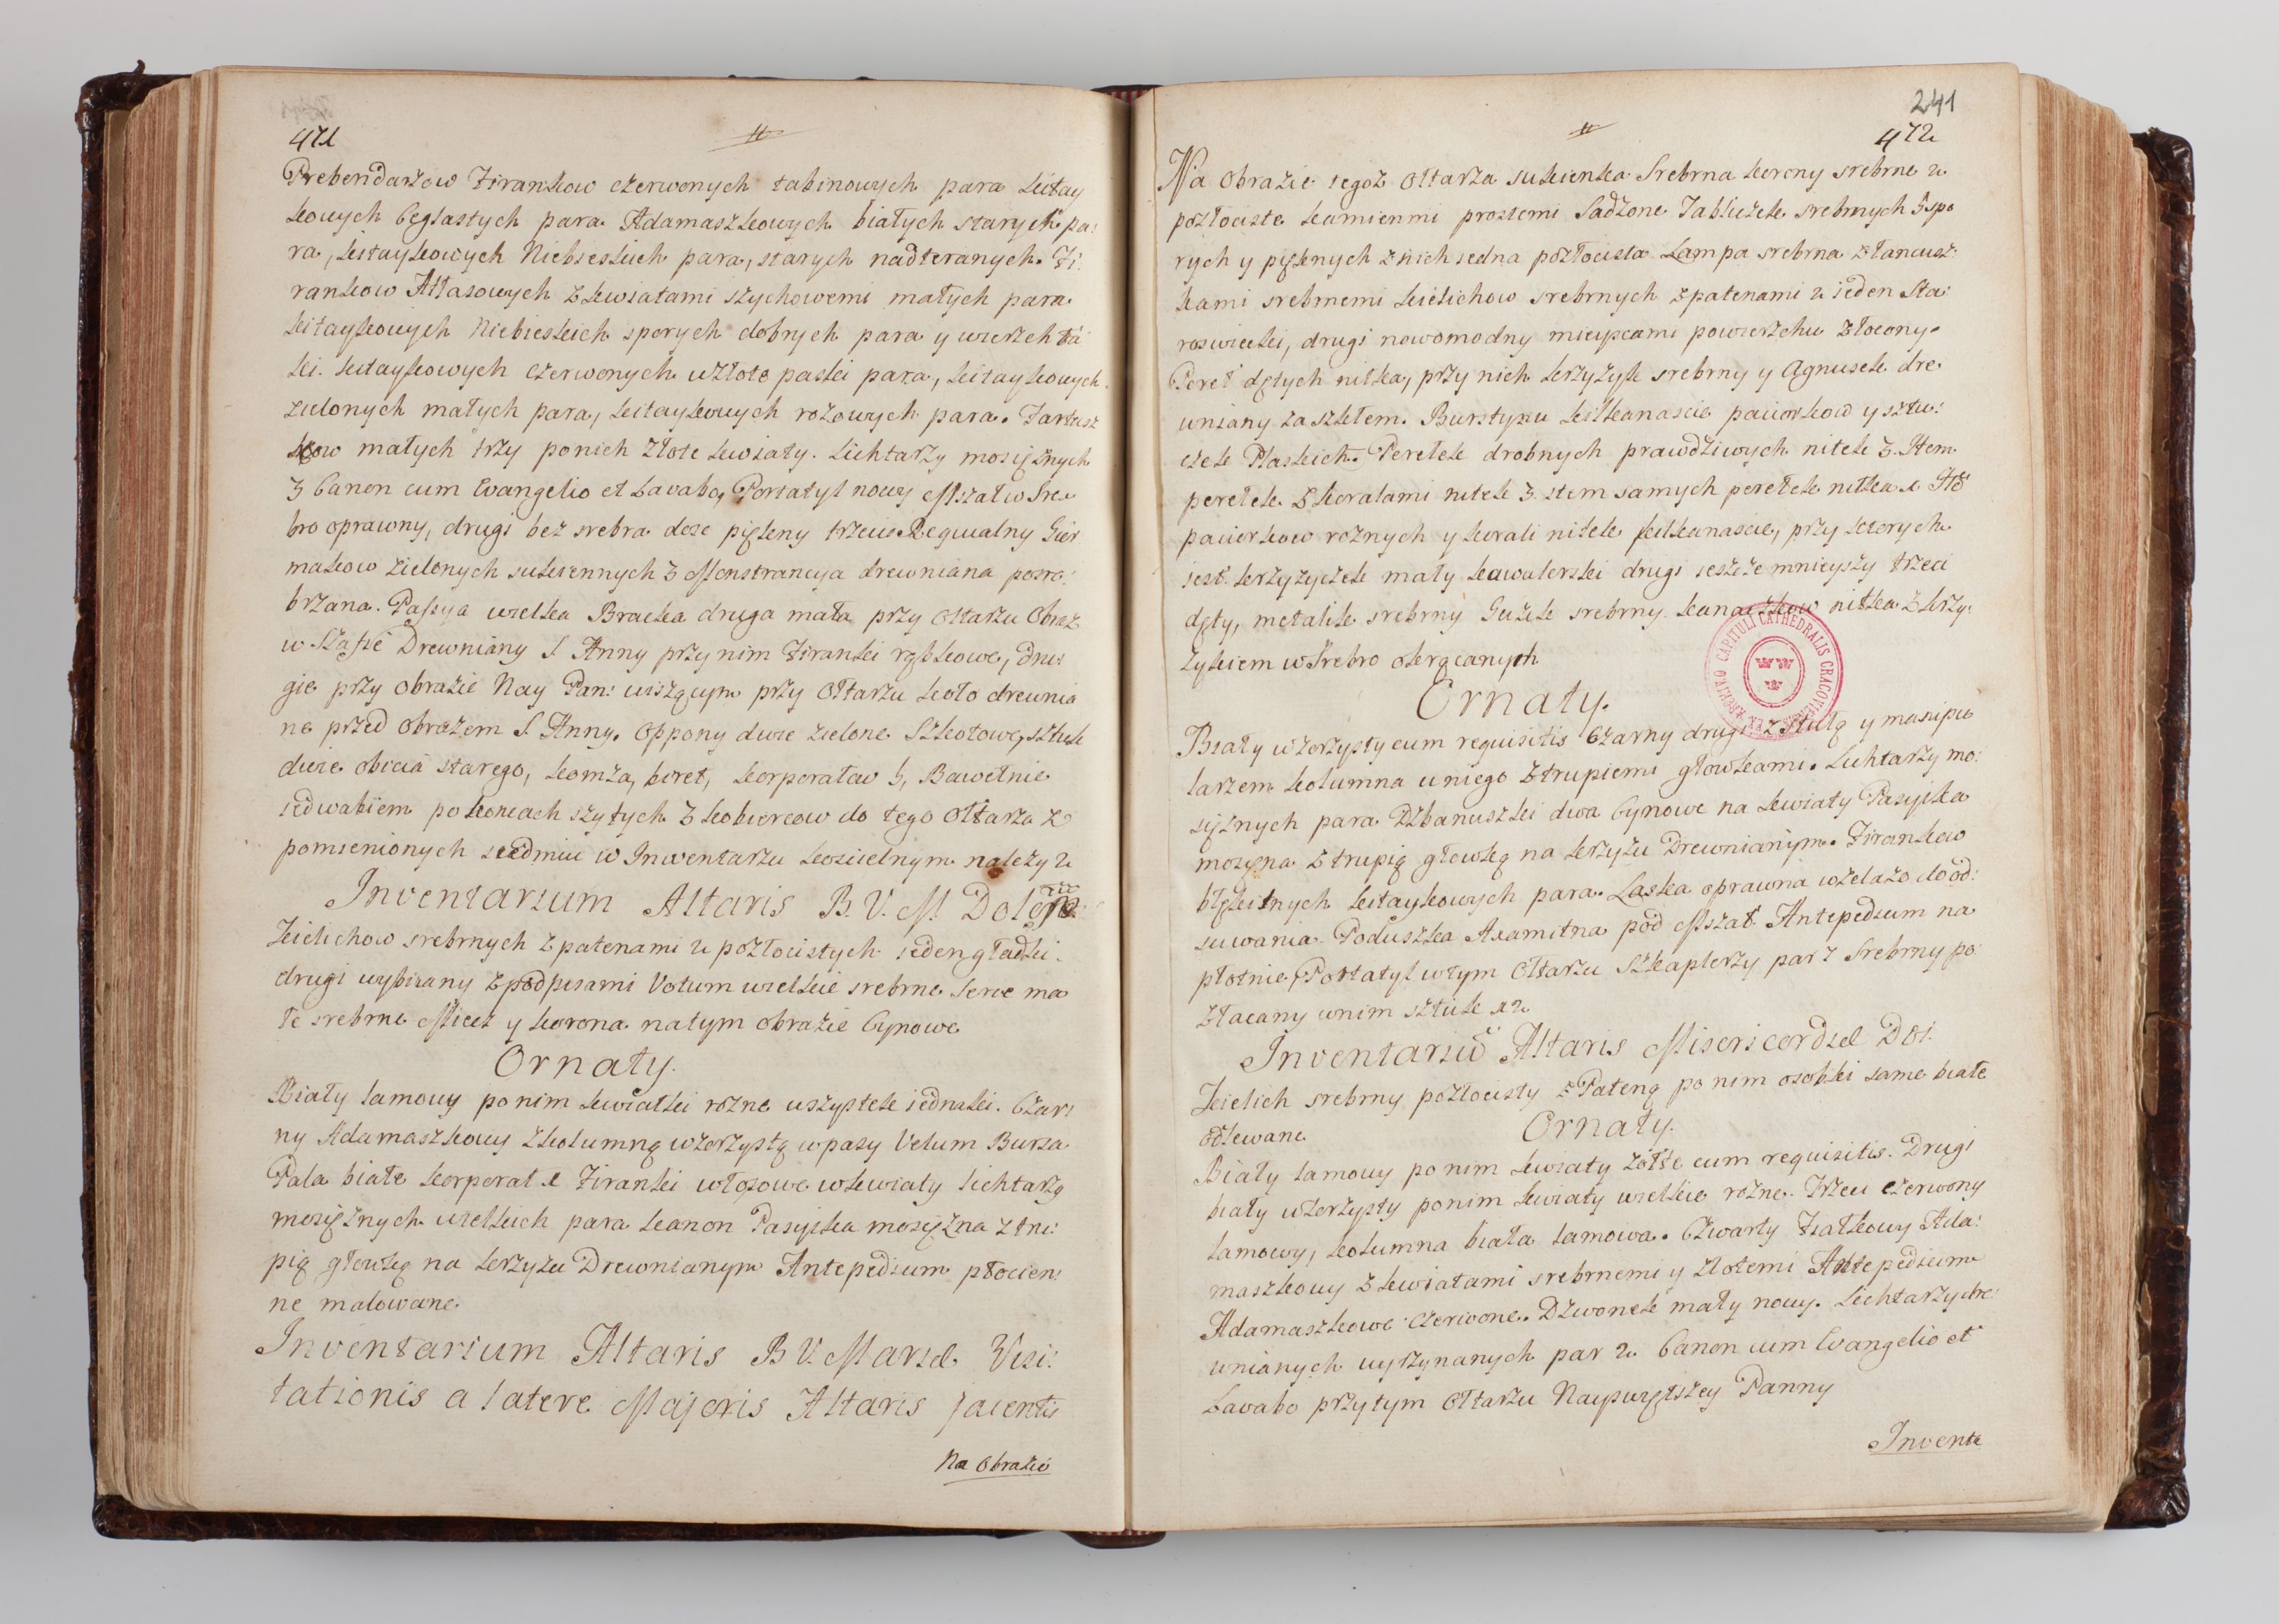 471
Prebendarzow Firankow czerwonych tabinowych para kitay
kowych Ceglastych para Adamaszkowych białych starych pa:
ra, kitaykowych Niebieskich para, starych nadteranych. Fi:
rankow Atłasowych z kwiatami szychowemi małych para
kitaykowych Niebieskich sporych dobrych para y wierzch tá
ki. kitaykowych czerwonych w złote paski para, kitaykowych
zielonych małych para, kitaykowych rożowych para. Fartusz
kow małych trzy po nich złote kwiaty. Lichtarzy mosiężnych
3 Canon cum Evangelio et Lavabo, Portatyl nowy Mszał w Sre
bro oprawny, drugi bez srebra dosc piękny trzeci Requialny Gier
makow zielonych sukiennych 3 Monstrancya drewniana posre:
brzana. Passya wielka Bracka druga mała przy Ołtarzu Obraz
w Szafie Drewniány S Anny przy nim Firanki rąbkowe, dru:
gie przy obrazie Nay Pan: wiszącym przy Ołtarzu koło drewnia
ne przed obrazem S Anny. Oppony dwie zielone Szkotowe, sztuk
dwie obicia starego, komża, biret, korporałow 5, Bawełnie
iedwabiem po koncach szytych 3 kobiercow do tego Ołtarza z
pomienionych siedmiu w Inwentarzu koscielnym należy 2
Inventarium Altaris B. V. M. Doloro
Kielichow srebrnych z patenami 2 pozłocistych ieden gładki
drugi wybiiany z podpisami Votum wielkie srebrne Serce ma
łe srebrne Miecz y korona na tym obrazie Cynowe
Ornaty.
Biały lamowy po nim kwiatki rozne wszystek iednaki. Czar:
ny Adamaszkowy z kolumną wzorzystą w pasy Velum Bursa
Pala białe korporał 1 Firanki włosowe w kwiaty lichtarzy
mosiężnych wielkich para kanon Pasyika mosiężna z tru:
pią głowką na krzyżu Drewnianym Antepedium płocien:
ne malowane
Inventarium Altaris B V. Mariæ Visi:
tationis a latere Majoris Altaris Jacentis
Na Obrazie
241
472
Na Obrazie tegoż Ołtarza sukienka Srebrna korony srebrne 2
pozłociste kamienmi prostemi Sadzone Tabliczek srebrnych 5 spo
rych y pięknych z nich iedna pozłocista Lampa srebrna z łancusz
kami srebrnemi kielichow srebrnych z patenami 2 ieden sta:
roswiecki, drugi nowomodny mieyscami powierzchu złocony
Pereł dętych nitka, przy nich krzyżyk srebrny y Agnusek dre
wniany za szkłem. Bursztynu kilkanascie paciorkow y sztu:
czek Płaskich. Perełek drobnych prawdziwych nitek 3. Item
perełek z koralami nitek 3. item samych perełek nitka 1 Itē
paciorkow roznych y korali nitek kilkanascie, przy ktorych
iest krzyżyczek mały kawalerski drugi ieszcze mnieyszy trzeci
dęty, metalik srebrny Guzek srebrny kanaczkow nitka z krzy:
żykiem w Srebro okręcanych
Ornaty.
Biały wzorzysty cum requisitis Czarny drugi z Stułą y manipu
larzem kolumna u niego z trupiemi głowkami. Lichtarzy mo:
siężnych para Dzbanuszki dwa Cynowe na kwiaty Pasyika
mosężna z trupią głowką na krzyżu Drewnianym. Firankow
błękitnych kitaykowych para. Laska oprawna w żelazo do od:
suwania Poduszka Axamitna pod Mszał Antepedium na
płotnie, Portatyl w tym Ołtarzu Szkaplerzy par 7 Srebrny po
złacany w nim sztuk 12
Inventariū Altaris Misericordiæ Dei
Kielich srebrny pozłocisty z Pateną po nim osobki same białe
odlewane
Ornaty.
Biały lamowy po nim kwiaty żółte cum requisitis. Drugi
biały wzorzysty po nim kwiaty wielkie rozne. Trzeci czerwony
lamowy, kolumna biała lamowa. Czwarty Fiałkowy Ada:
maszkowy z kwiatami srebrnemi y złotemi Antepedium
Adamaszkowe czerwone. Dzwonek mały nowy. Lichtarzy dre:
wnianych wyrzynanych par 2 Canon cum Evangelio et
Lavabo przy tym Ołtarzu Nayswiętszey Panny
Invent
ARCHIVO CAPITULI CATHEDRALIS CRACOVIENSIS EX